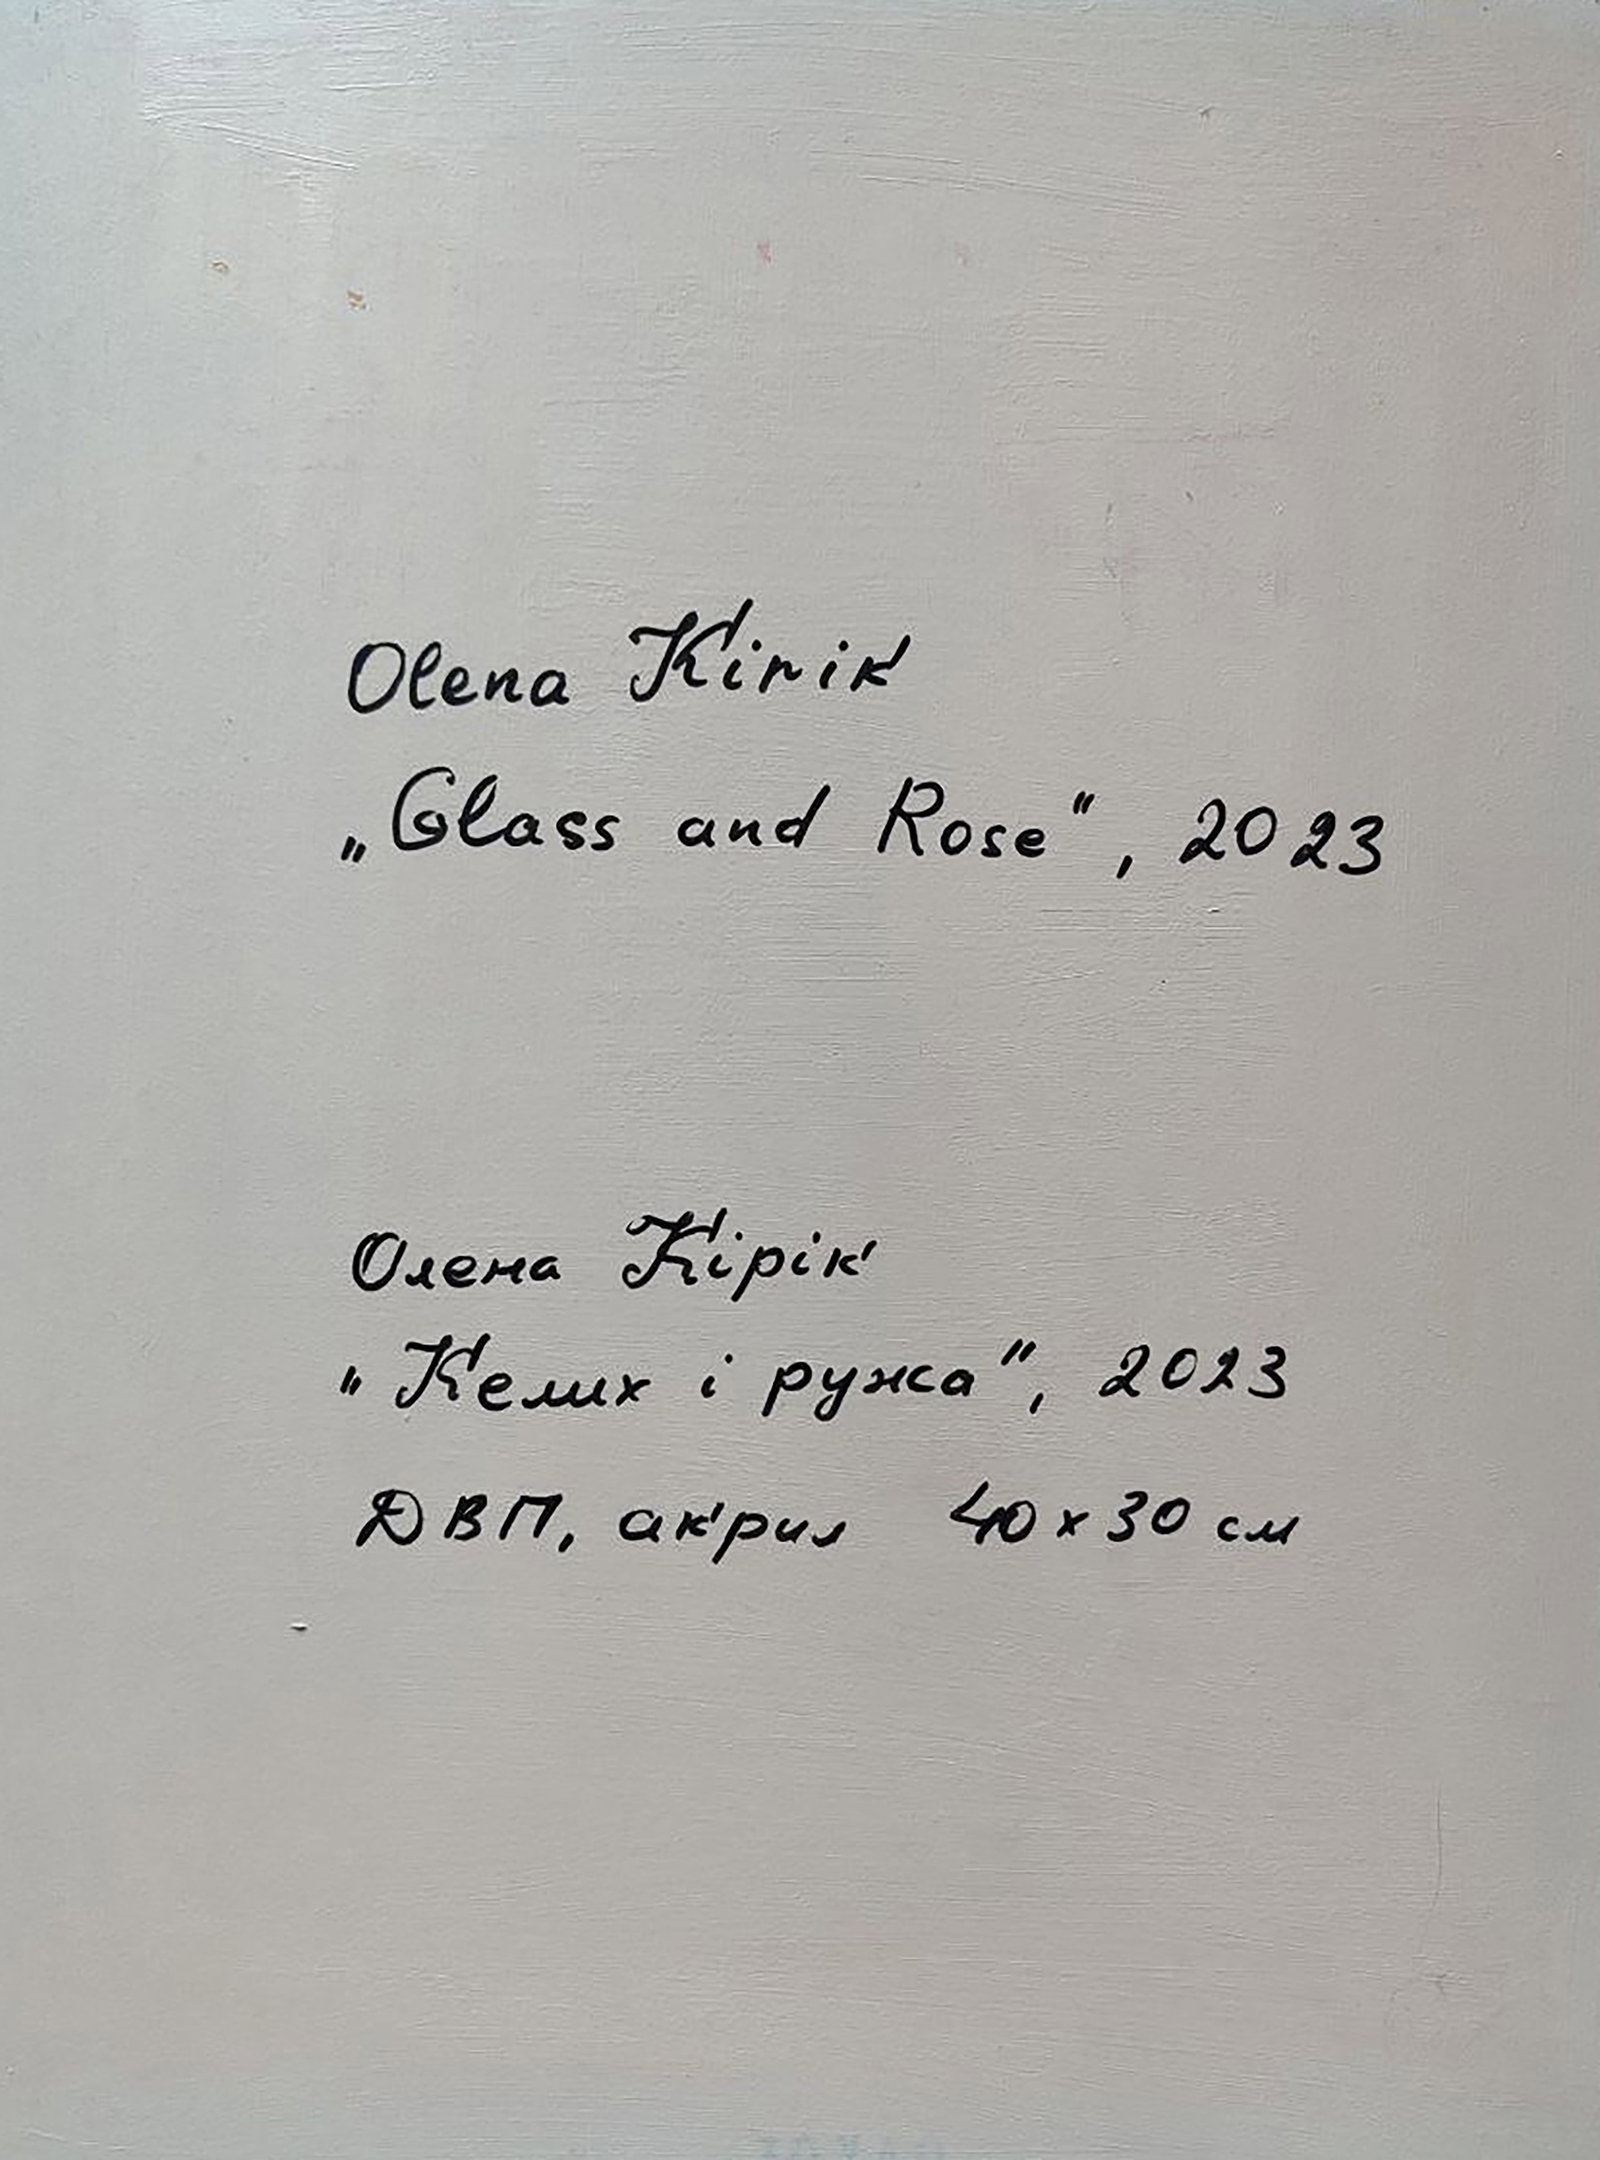 Olena Kirik
„Glass and Rose", 2023
Олена Кірік
„Келих і ружа", 2023
ДВП, акрил 40x30 см